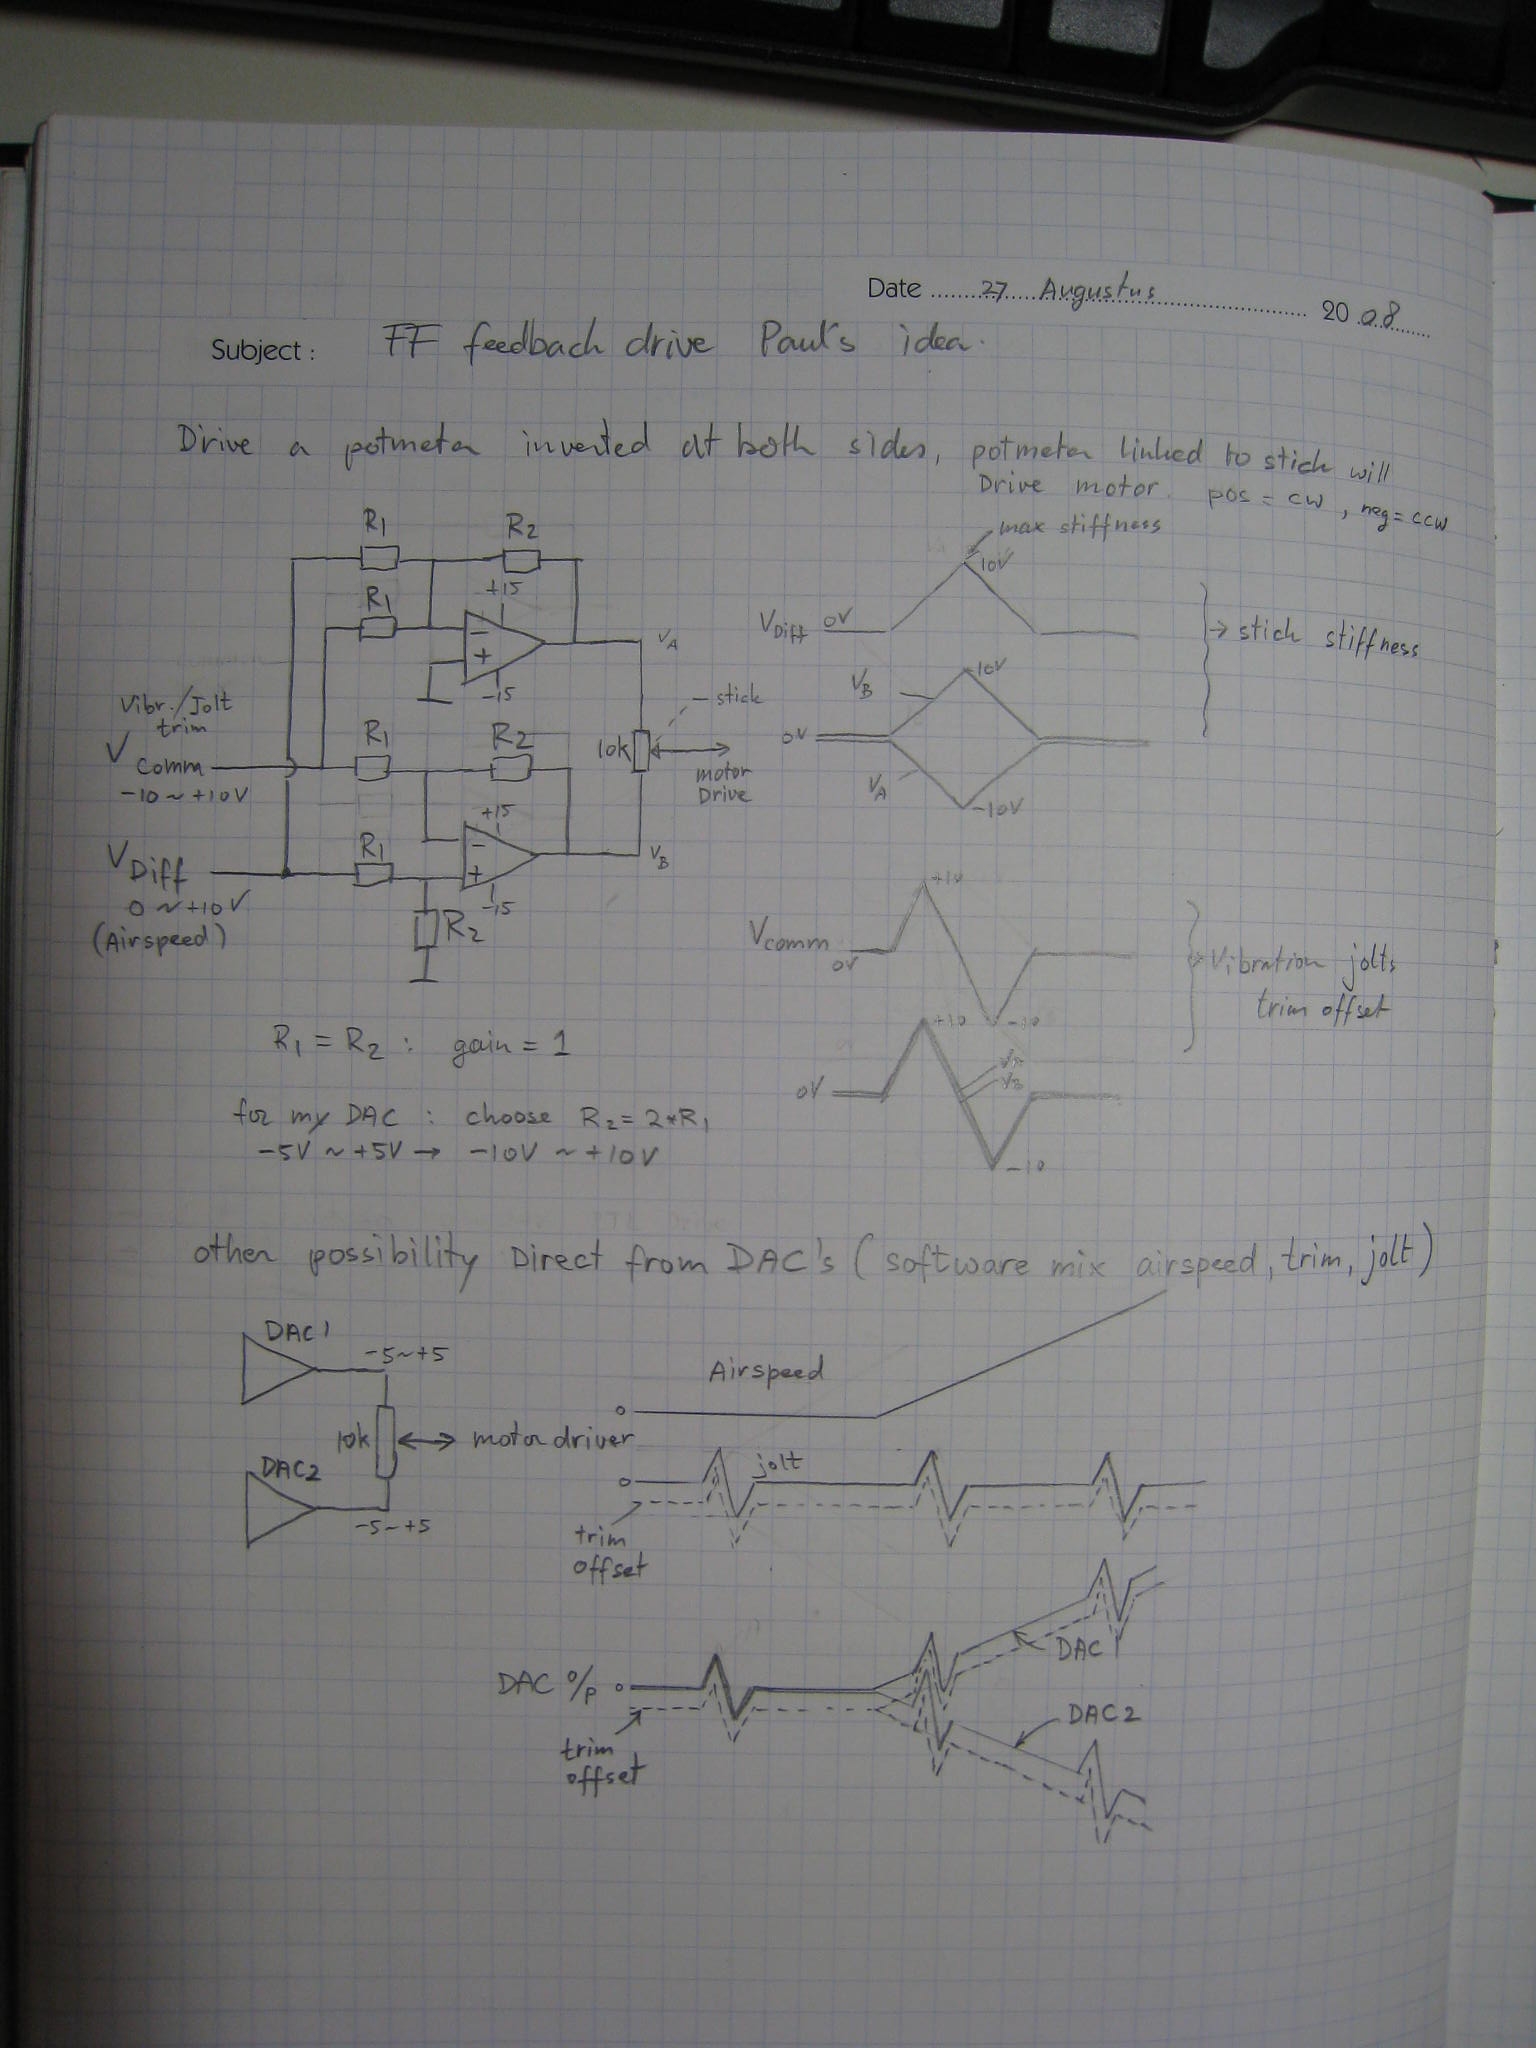 Date 27 Augustus 2008
Subject: FF feedback drive Paul's idea.
Drive a potmeter inverted at both sides, potmeter linked to stick will
Drive motor. pos = cw, neg = ccw
R1
R2
R1
+15
-
+
-15
VA
Vibr./Jolt
trim
V comm
-10 ~ +10V
R1
R2
- stick
10k
motor
Drive
+15
-
+
-15
VB
VDiff
0 ~ +10V
(Airspeed)
R1
R2
max stiffness
10V
VDiff 0V
→ stick stiffness
VB
10V
0V
VA
-10V
+10
Vcomm
0V
-10
Vibration jolts
trim offset
+10
0V
VA
VB
-10
R1 = R2 : gain = 1
for my DAC : choose R2 = 2*R1
-5V ~ +5V → -10V ~ +10V
other possibility Direct from DAC's (software mix airspeed, trim, jolt)
DAC1
-5~+5
10k
motor driver
DAC2
-5~+5
Airspeed
jolt
trim
offset
DAC 1
DAC o/p
DAC2
trim
offset